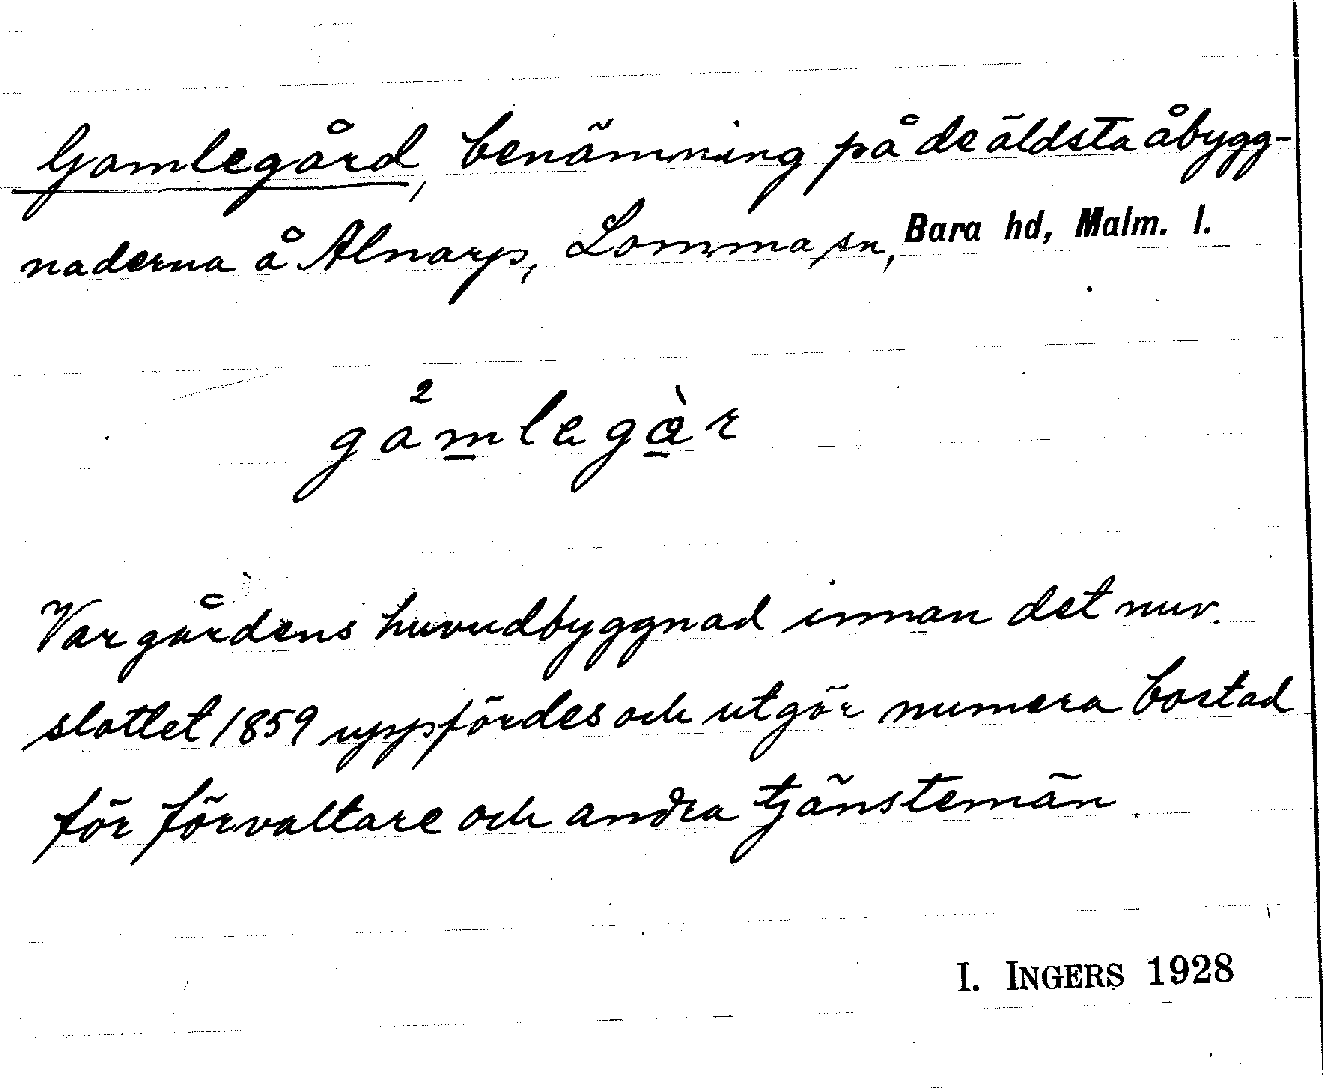 Gamlegård, benämning på de äldsta åbygg-
naderna å Alnarp, Lomma sn, Bara hd, Malm. l.
gå²mlegàr
Var gårdens huvudbyggnad innan det nuv.
slottet 1859 uppfördes och utgör numera bostad
för förvaltare och andra tjänstemän.
I. INGERS 1928